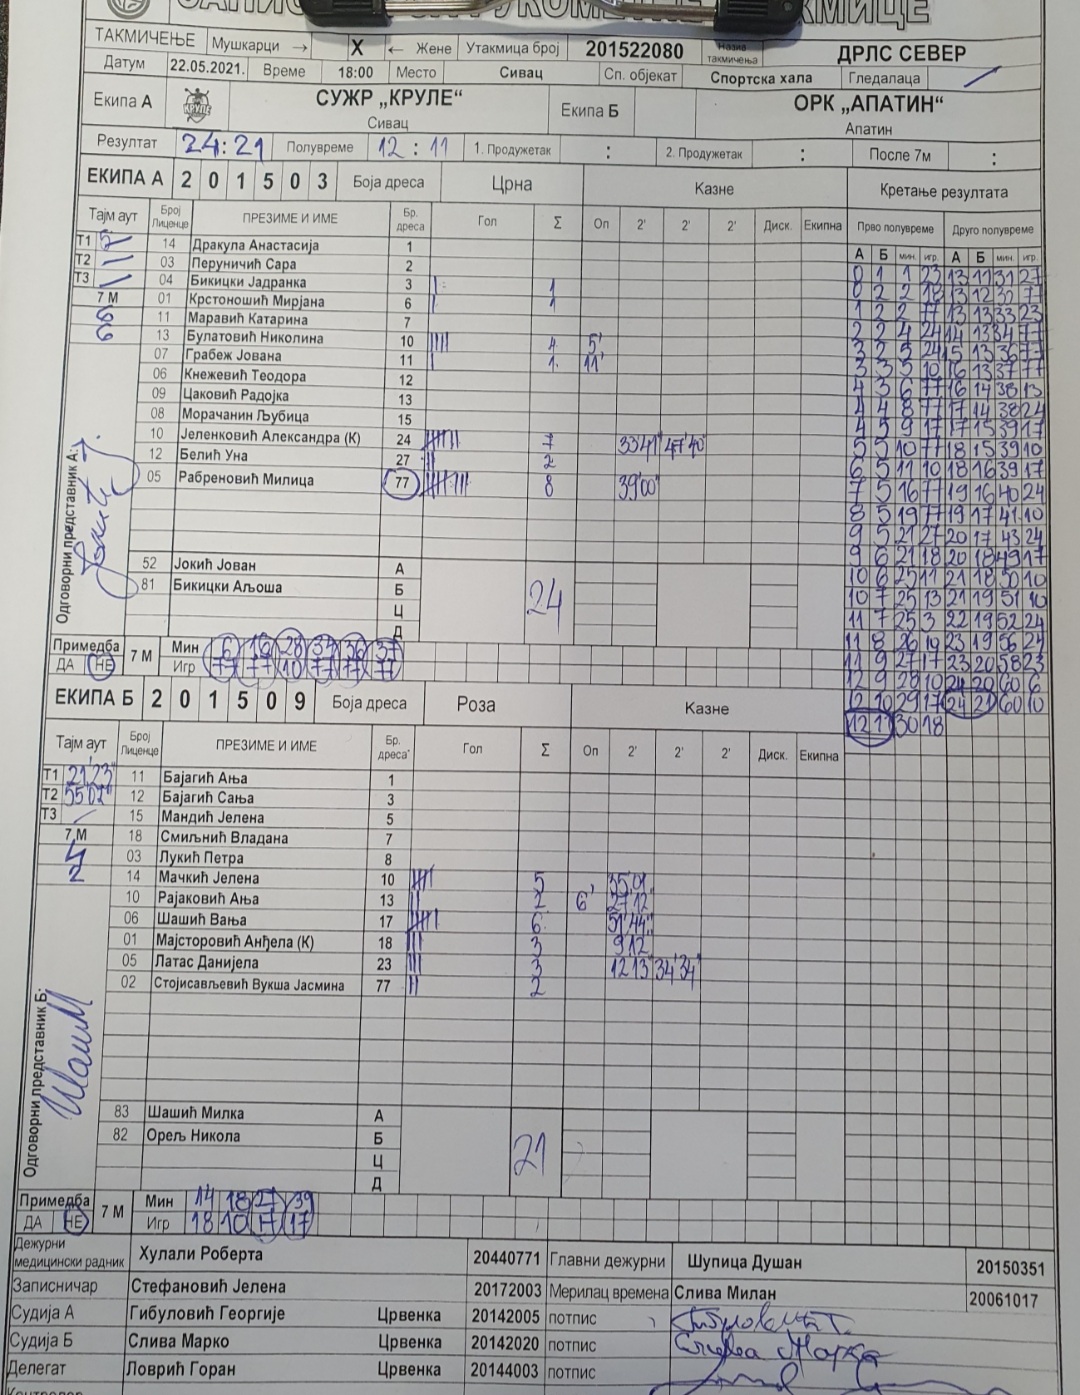 ТАКМИЧЕЊЕ Мушкарци → X ← Жене Утакмица број 201522080 Назив такмичења ДРЛС СЕВЕР
Датум 22.05.2021. Време 18:00 Место Сивац Сп. објекат Спортска хала Гледалаца
Екипа А КРУЛЕ СУЖР „КРУЛЕ“ Сивац Екипа Б ОРК „АПАТИН“ Апатин
Резултат 24:21 Полувреме 12:11 1. Продужетак : 2. Продужетак : После 7м :
ЕКИПА А 2 0 1 5 0 3 Боја дреса Црна Казне Кретање резултата
Тајм аут Број Лиценце ПРЕЗИМЕ И ИМЕ Бр. дреса Гол Σ Оп 2' 2' 2' Диск. Екипна Прво полувреме Друго полувреме
А Б мин. игр. А Б мин. игр.
Т1 14 Дракула Анастасија 1
Т2 03 Перуничић Сара 2
Т3 04 Бикицки Јадранка 3 1
7 М 01 Крстоношић Мирјана 6 1
6 11 Маравић Катарина 7
6 13 Булатовић Николина 10 4 5'
07 Грабеж Јована 11 1 11'
06 Кнежевић Теодора 12
09 Цаковић Радојка 13
08 Морачанин Љубица 15
10 Јеленковић Александра (К) 24 7 33'41" 47'40"
12 Белић Уна 27 2
05 Рабреновић Милица 77 8 39'00"
52 Јокић Јован А
81 Бикицки Аљоша Б
Ц
Д
24
Одговорни представник А:
0 1 1 23 13 11 31 27
0 2 2 18 13 12 32 77
1 2 2 77 13 13 33 23
2 2 4 24 14 13 34 77
3 2 5 24 15 13 36 77
3 3 5 10 16 13 37 77
4 3 6 77 16 14 38 13
4 4 8 77 17 14 38 24
4 5 9 17 17 15 39 17
5 5 10 77 18 15 39 10
6 5 11 10 18 16 39 17
7 5 16 77 19 16 40 24
8 5 19 77 19 17 41 10
9 5 21 27 20 17 43 24
9 6 21 18 20 18 49 17
10 6 25 11 21 18 50 10
10 7 25 13 21 19 51 10
11 7 25 3 22 19 52 24
11 8 26 23 19 56 24
11 9 27 17 23 20 58 23
12 9 28 10 24 20 60 6
12 10 29 17 24 21 60 10
12 11 30 18
Примедба ДА НЕ 7 М Мин 6 16 28 34 36 37
Игр 77 77 10 77 77 77
ЕКИПА Б 2 0 1 5 0 9 Боја дреса Роза Казне
Тајм аут Број Лиценце ПРЕЗИМЕ И ИМЕ Бр. дреса Гол Σ Оп 2' 2' 2' Диск. Екипна
Т1 21'23" 11 Бајагић Ања 1
Т2 55'02" 12 Бајагић Сања 3
Т3 15 Мандић Јелена 5
7 М 18 Смиљнић Владана 7
4 03 Лукић Петра 8
2 14 Мачкић Јелена 10 5 35'01"
10 Рајаковић Ања 13 2 6' 27'12"
06 Шашић Вања 17 6 51'44"
01 Мајсторовић Анђела (К) 18 3 9'12"
05 Латас Данијела 23 3 12'13" 34'34"
02 Стојисављевић Вукша Јасмина 77 2
Одговорни представник Б:
83 Шашић Милка А
82 Орељ Никола Б
Ц
Д
21
Примедба ДА НЕ 7 М Мин 14 18 27 39
Игр 18 10 17 17
Дежурни медицински радник Хулали Роберта 20440771 Главни дежурни Шупица Душан 20150351
Записничар Стефановић Јелена 20172003 Мерилац времена Слива Милан 20061017
Судија А Гибуловић Георгије Црвенка 20142005 потпис
Судија Б Слива Марко Црвенка 20142020 потпис Слива Марко
Делегат Ловрић Горан Црвенка 20144003 потпис